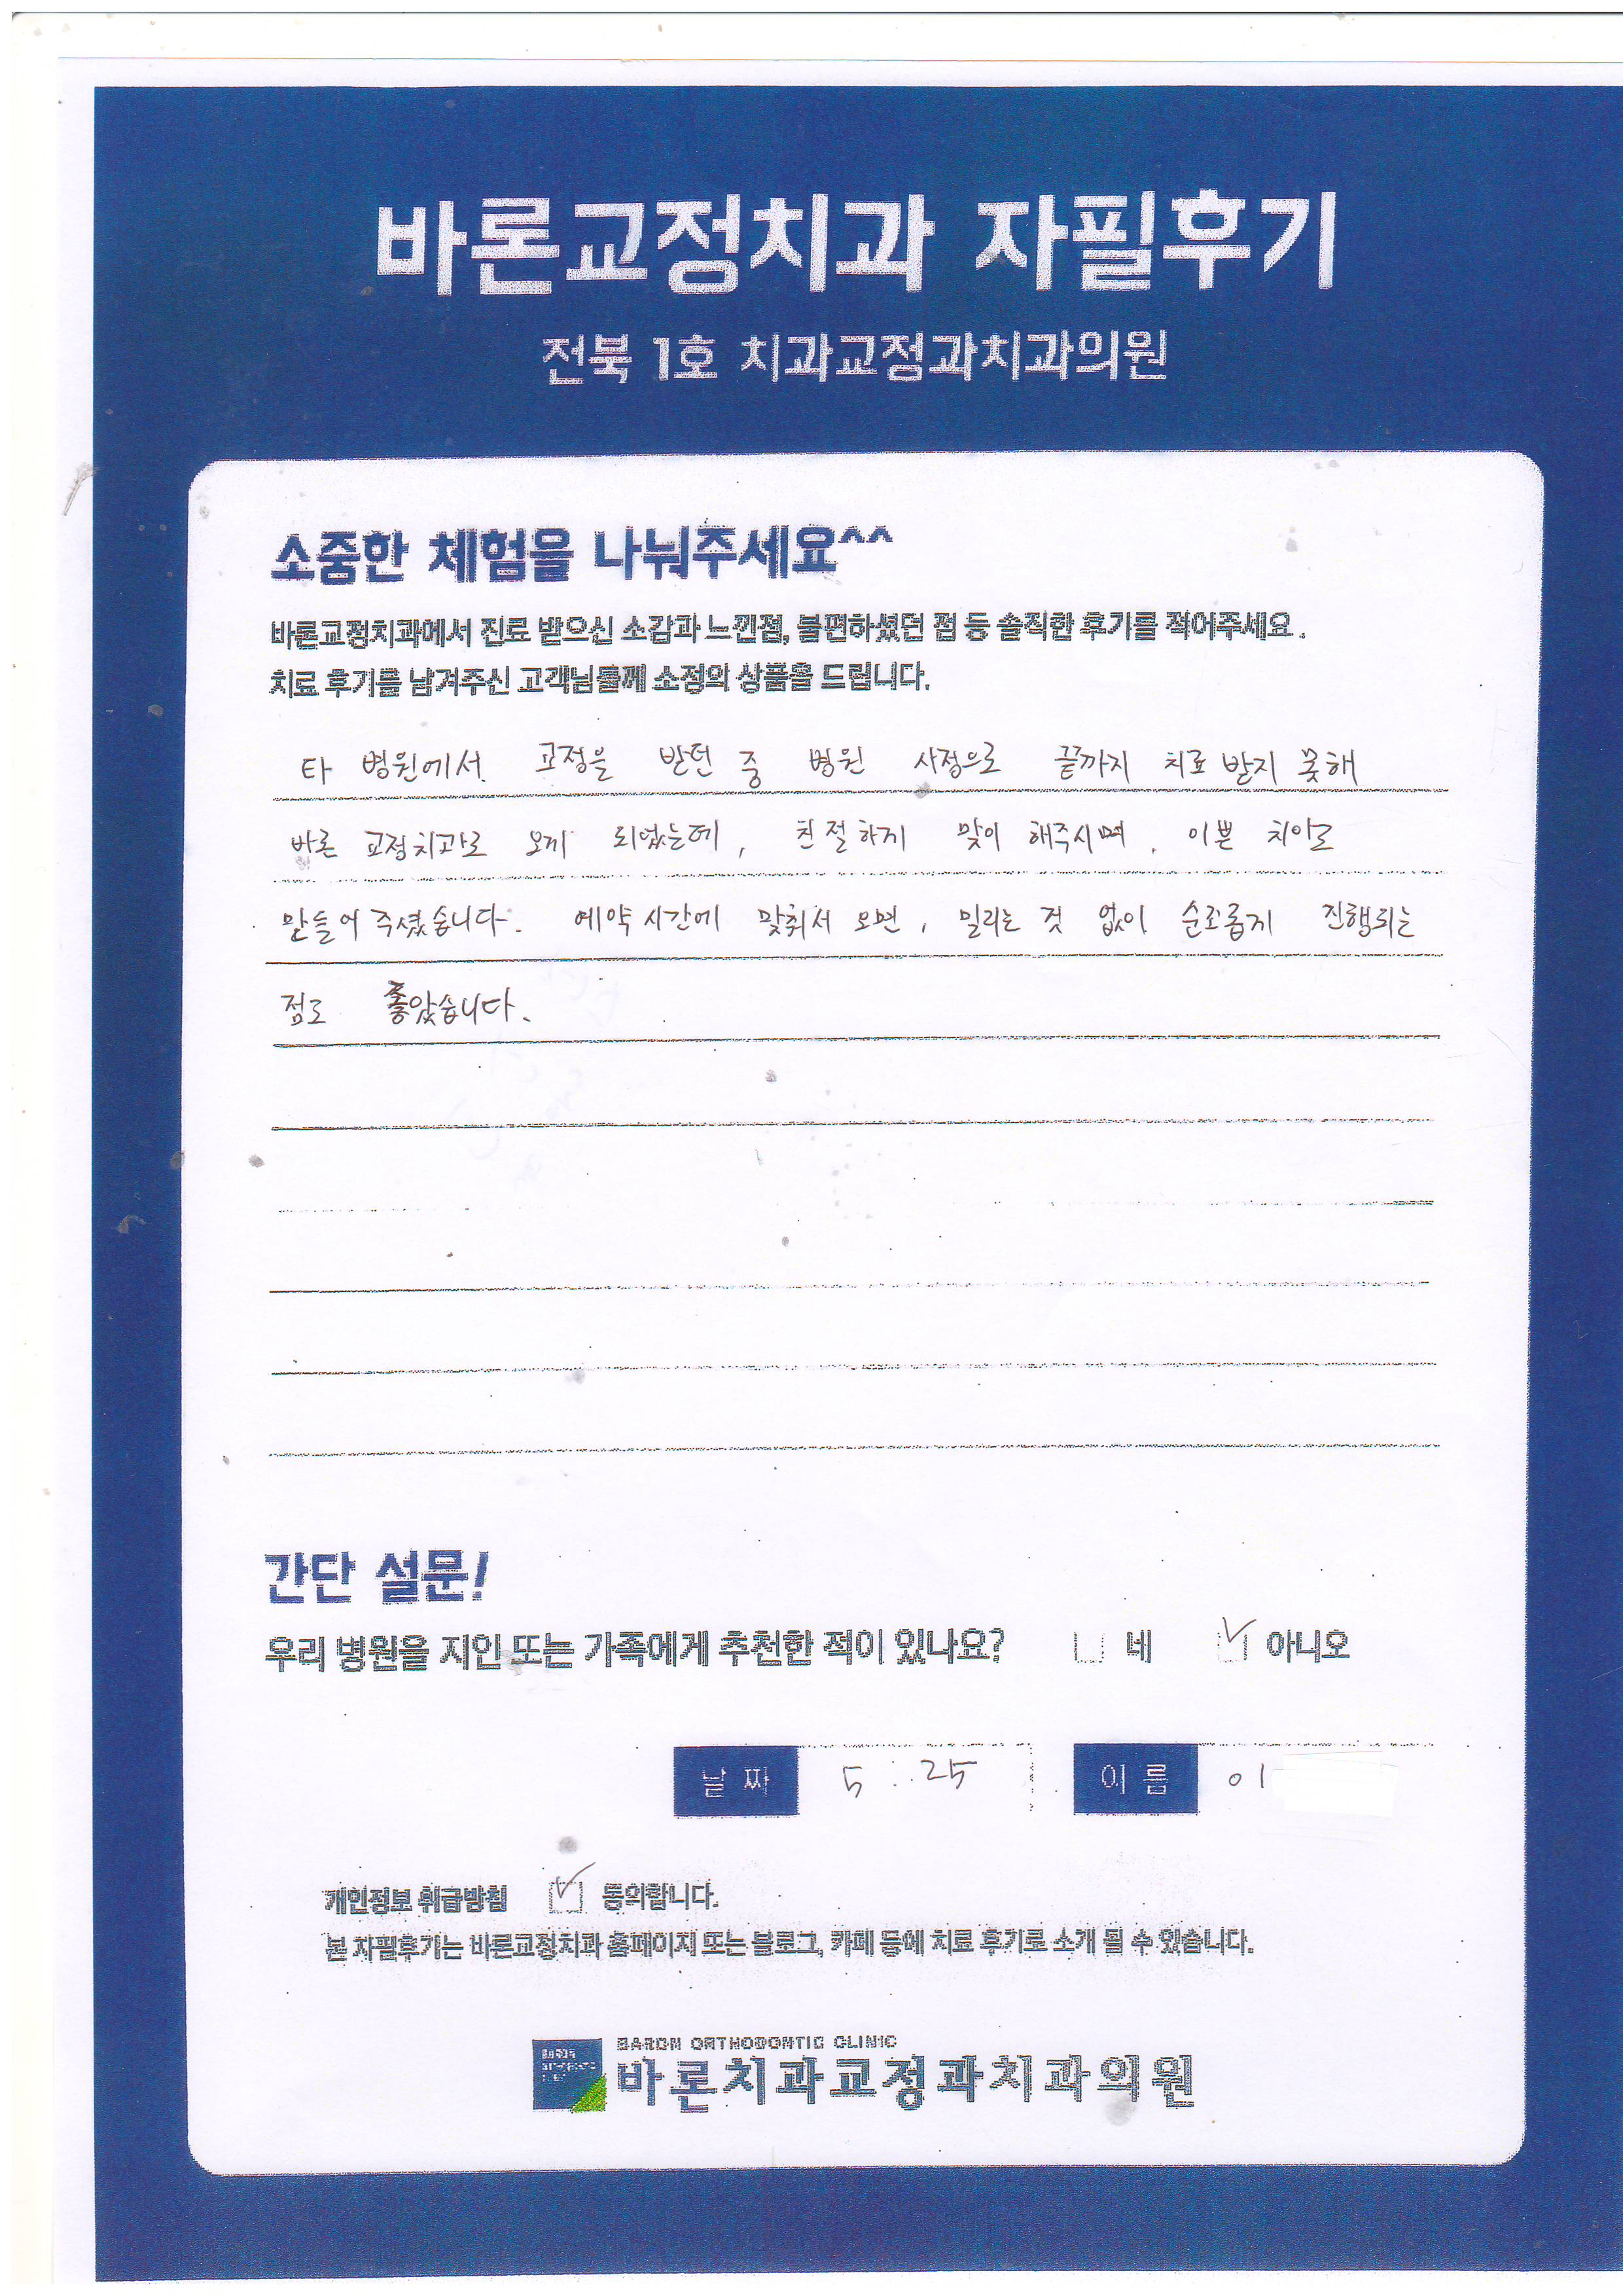 바론교정치과 자필후기
전북 1호 치과교정과치과의원
소중한 체험을 나눠주세요^^
바론교정치과에서 진료 받으신 소감과 느낀점, 불편하셨던 점 등 솔직한 후기를 적어주세요.
치료 후기를 남겨주신 고객님들께 소정의 상품을 드립니다.
타 병원에서 교정을 받던 중 병원 사정으로 끝까지 치료 받지 못해
바론 교정치과로 오게 되었는데, 친절하게 맞이 해주시며, 이쁜 치아로
만들어 주셨습니다. 예약시간에 맞춰서 오면, 밀리는 것 없이 순조롭게 진행되는
점도 좋았습니다.
간단 설문!
우리 병원을 지인 또는 가족에게 추천한 적이 있나요? 네 아니오
날짜 5 . 25 이름 이
개인정보 취급방침 동의합니다.
본 자필후기는 바론교정치과 홈페이지 또는 블로그, 카페 등에 치료 후기로 소개 될 수 있습니다.
BARON ORTHODONTIC CLINIC
바론치과교정과치과의원